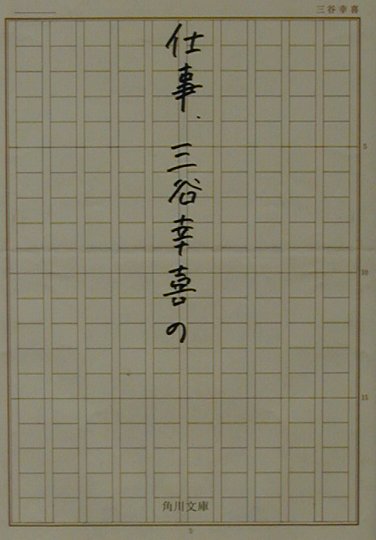 三谷幸喜
仕事、三谷幸喜の
5
10
15
角川文庫